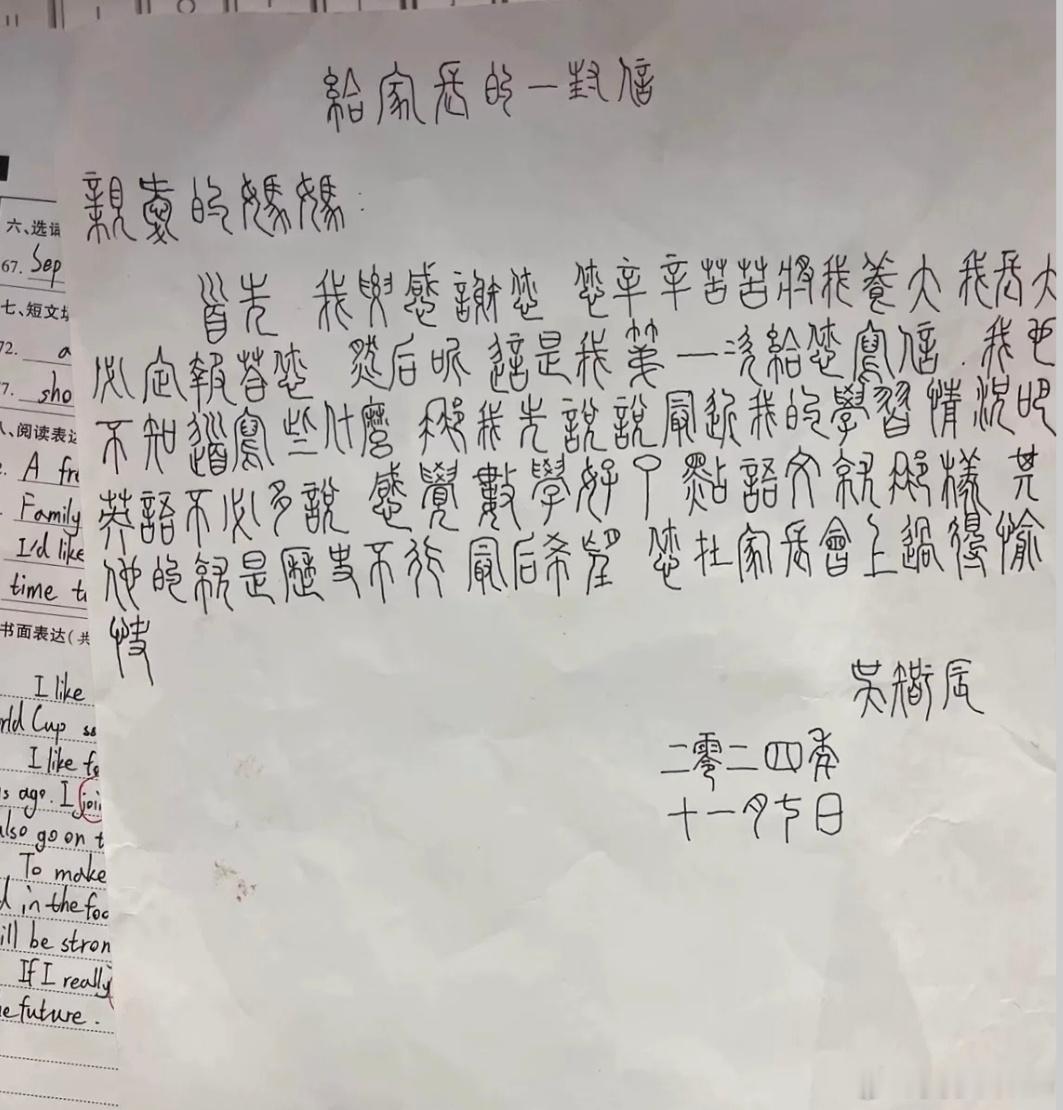 給家長的一封信
親愛的媽媽:
首先 我要感謝您 您辛辛苦苦將我養大 我長大
必定報答您 然后呢 這是我第一次給您寫信.我也
不知道寫些什麼 那我先說說最近我的學習情況吧
英語不必多說 感覺數學好一點語文就那樣 其
他的就是歷史不行 最后希望 您在家長會上過得愉
快
吳 辰
二零二四年
十一月七日
六、选词
67. Sep
七、短文填
72. a
7. sho
八、阅读表达
A fre
Family
I'd like
time t
书面表达(共
I like
rld Cup ss
I like fo
s ago. I joi
also go on t
To make
d in the foo
ill be stron
If I really
e future.